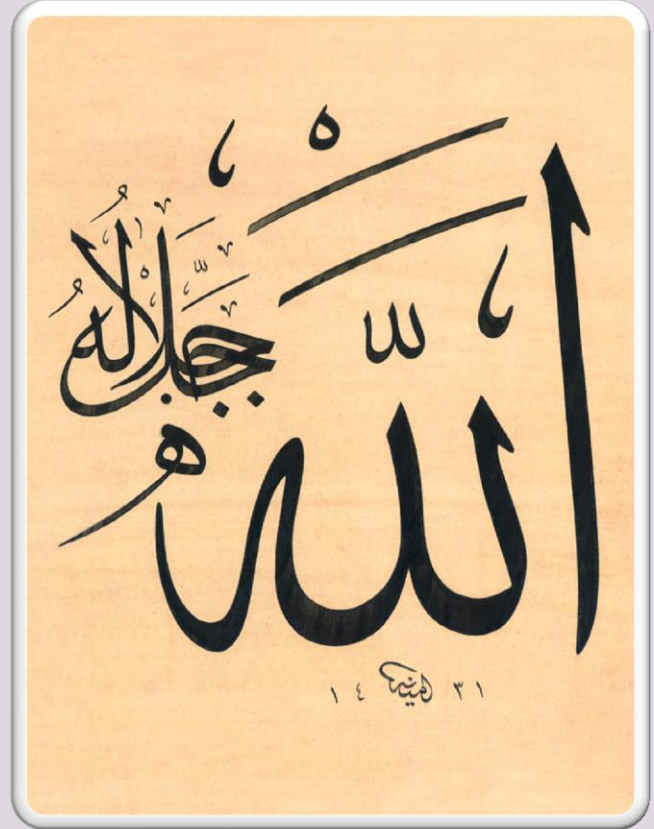 اللّٰهُ
جَلَّ جَلَالُهُ
١٤ ٣١